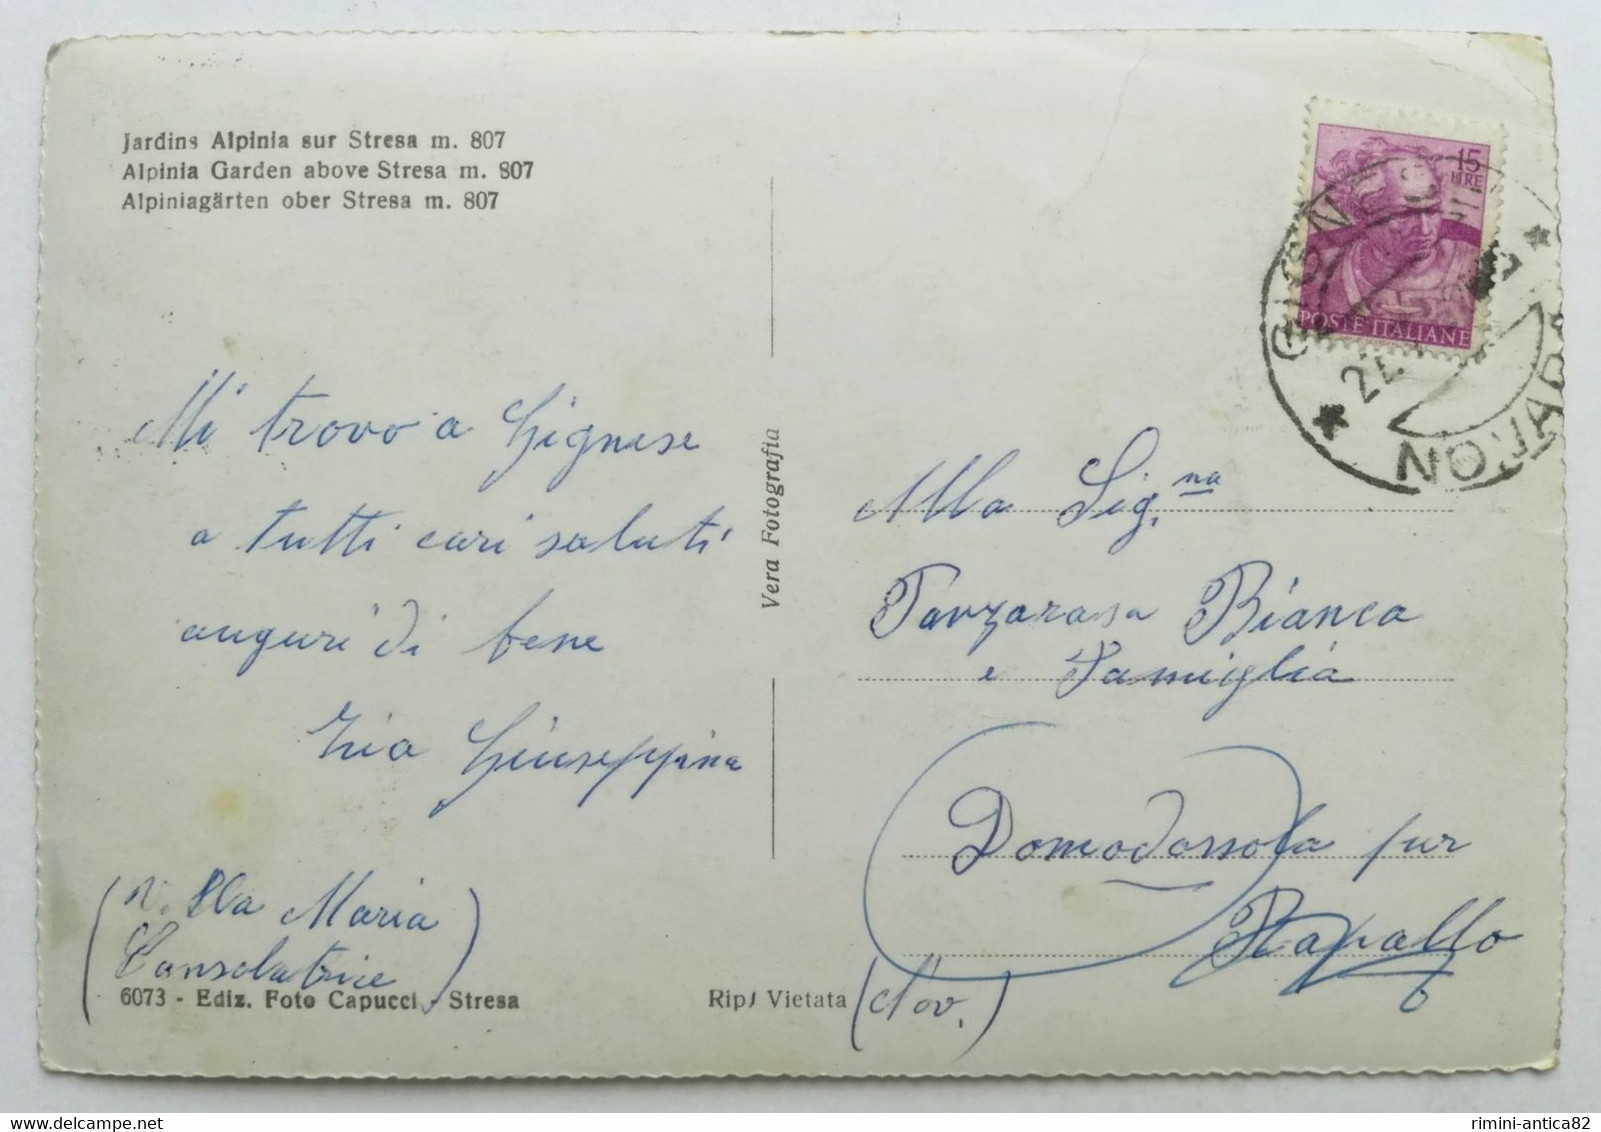 Jardins Alpinia sur Stresa m. 807
Alpinia Garden above Stresa m. 807
Alpiniagärten ober Stresa m. 807
Mi trovo a Gignese
a tutti cari saluti
auguri di bene
Zia Giuseppina
(Villa Maria
Consolatrice)
6073 - Ediz. Foto Capucci - Stresa
Vera Fotografia
Rip. Vietata
15
LIRE
POSTE ITALIANE
NOVARA
Alla Sig.na
Bianca
e Famiglia
Domodossola per
Rapallo
(Nov.)
rimini-antica82